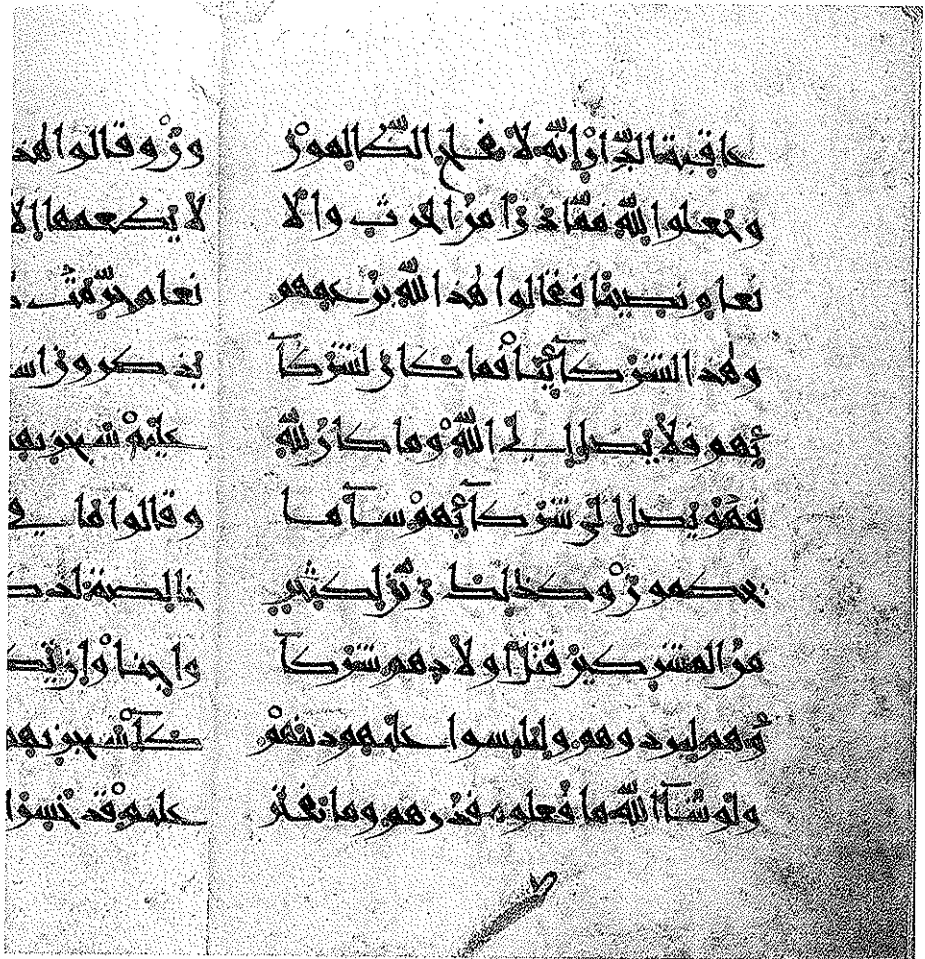 عاقبة الدار إنه لا يفلح الظالمون
وجعلوا لله مما ذرأ من الحرث والا
نعام نصيبا فقالوا هذا لله بزعمهم
وهذا لشركآئنا فما كان لشركآ
ئهم فلا يصل إلى الله وما كان لله
فهو يصل إلى شركآئهم سآء ما
يحكمون وكذلك زين لكثير
من المشركين قتل أولادهم شركآ
ؤهم ليردوهم وليلبسوا عليهم دينهم
ولو شآء الله ما فعلوه فذرهم وما يفتر
ون وقالوا هذ
لا يطعمها إلا
نعام حرمت
يذكرون اسم
عليه سيجزيهم
وقالوا ما في
خالصة لذك
واجنا وإن يك
كآء سيجزيهم
عليم قد خسر ا